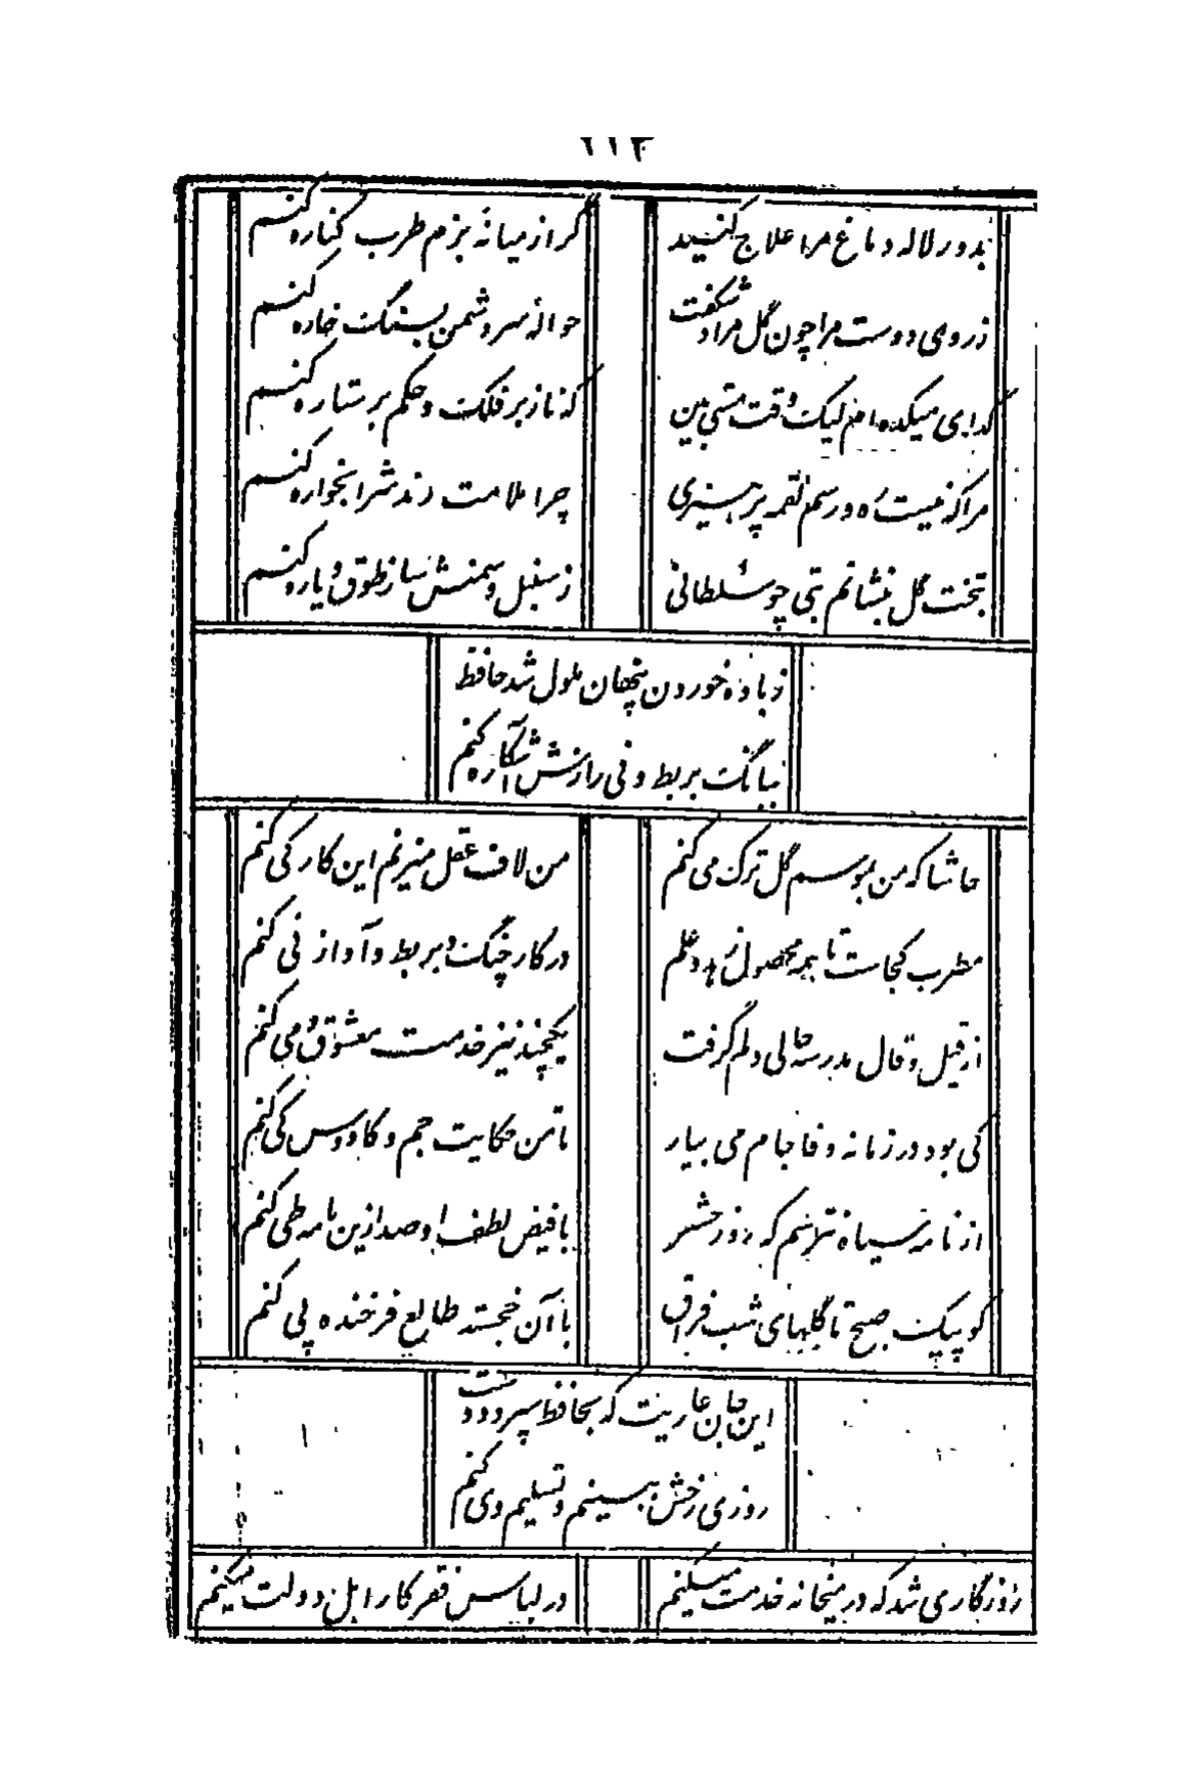 ۲۱۳
بدور لاله دماغ مرا علاج کنید
گر از میانهٔ بزم طرب کناره کنم
ز روی دوست مرا چون گل مراد شکفت
حوالهٔ سر دشمن بسنگ خاره کنم
گدای میکده ام لیک وقت مستی بین
که ناز بر فلک و حکم بر ستاره کنم
مرا که نیست ره و رسم لقمه پرهیزی
چرا ملامت رند شرابخواره کنم
بتخت گل بنشانم بتی چو سلطانی
ز سنبل و سمنش ساز طوق و یاره کنم
ز باده خوردن پنهان ملول شد حافظ
ببانگ بربط و نی رازش آشکاره کنم
حاشا که من بموسم گل ترک می کنم
من لاف عقل میزنم این کار کی کنم
مطرب کجاست تا همه محصول زهد و علم
در کار چنگ و بربط و آواز نی کنم
از قیل و قال مدرسه حالی دلم گرفت
یکچند نیز خدمت معشوق و می کنم
کی بود در زمانه وفا جام می بیار
تا من حکایت جم و کاووس کی کنم
از نامه سیاه نترسم که روز حشر
با فیض لطف او صد ازین نامه طی کنم
کو پیک صبح تا گلهای شب فراق
با آن خجسته طالع فرخنده پی کنم
این جان عاریت که بحافظ سپرد دوست
روزی رخش ببینم و تسلیم وی کنم
روزگاری شد که در میخانه خدمت میکنم
در لباس فقر کار اهل دولت میکنم